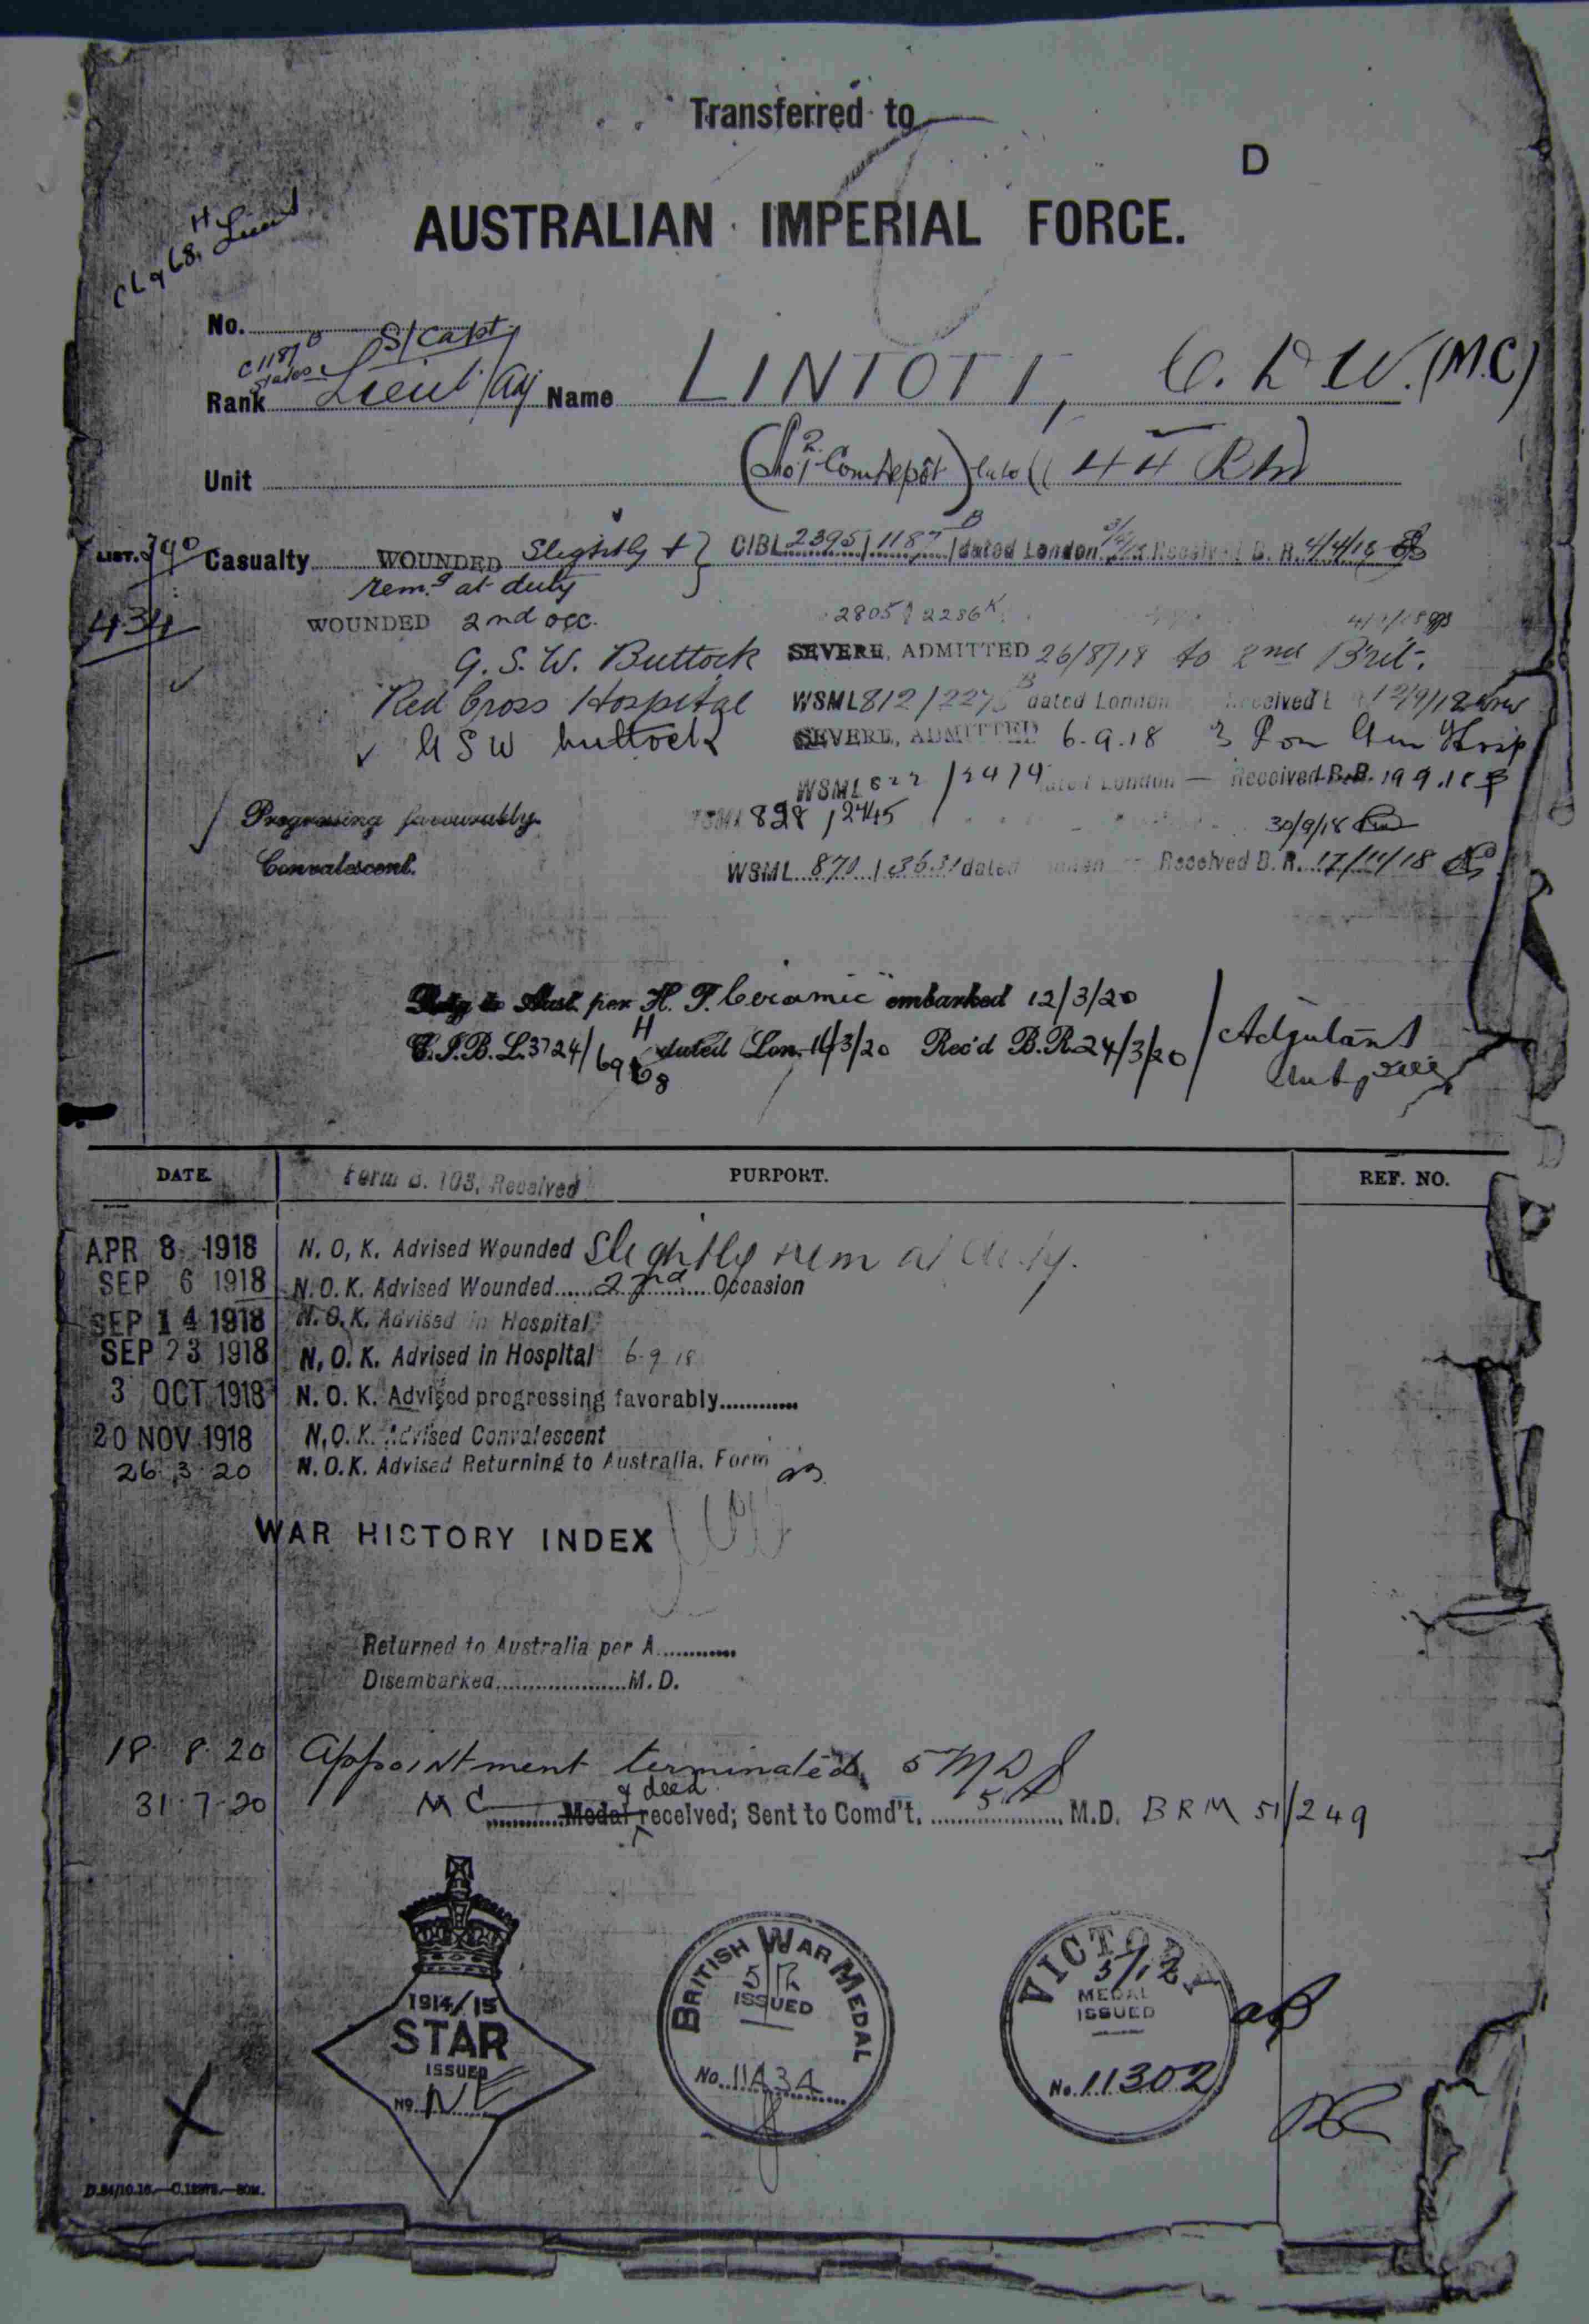 Transferred to
D
AUSTRALIAN IMPERIAL FORCE.
Lieut
No.
S/Capt.
C 1187 B
states
Rank Lieut/Adj Name LINTOTT, C. D W. (M.C)
Unit (No 1 Com Depot) late (44 Bn)
LIST. 390 Casualty WOUNDED Slightly + } CIBL 2395/1187 B dated London Received B. R. 4/4/18
rem.g at duty
434
WOUNDED 2nd occ. 2805 2286 K
G. S. W. Buttock SEVERE, ADMITTED 26/8/18 to 2nd Brit.
Red Cross Hospital WSML 812/227 B dated London Received 12/9/18
G S W buttock SEVERE, ADMITTED 6.9.18 3 Lon Gen Hosp
WSML 822/2474 dated London — Received B.R. 19.9.18
Progressing favourably. 828/2445 30/9/18
Convalescent. WSML 870/3631 dated Received B. R. 17/11/18
Rtg to Aust. per H. T. "Ceramic" embarked 12/3/20
C.I.B.L. 3724/6968 H dated Lon. 16/3/20 Rec'd B.R. 24/3/20 / Adjutant
DATE. Form B. 103. Received PURPORT. REF. NO.
APR 8 1918 N. O. K. Advised Wounded Slightly rem at duty.
SEP 6 1918 N.O.K. Advised Wounded......2nd......Occasion
SEP 14 1918 N.O.K. Advised in Hospital
SEP 23 1918 N.O.K. Advised in Hospital 6.9.18
3 OCT 1918 N.O.K. Advised progressing favorably............
20 NOV 1918 N.O.K. Advised Convalescent
26.3.20 N.O.K. Advised Returning to Australia. Form
WAR HISTORY INDEX
Returned to Australia per A............
Disembarked.....................M.D.
18.8.20 Appointment terminated 5 M D
& deed
31.7.20 M C Medal received; Sent to Comd't. 5 M.D. BRM 51/249
1914/15
STAR
ISSUED
No.
BRITISH WAR MEDAL
ISSUED
No. 11434
VICTORY
5/12
MEDAL
ISSUED
No. 11302